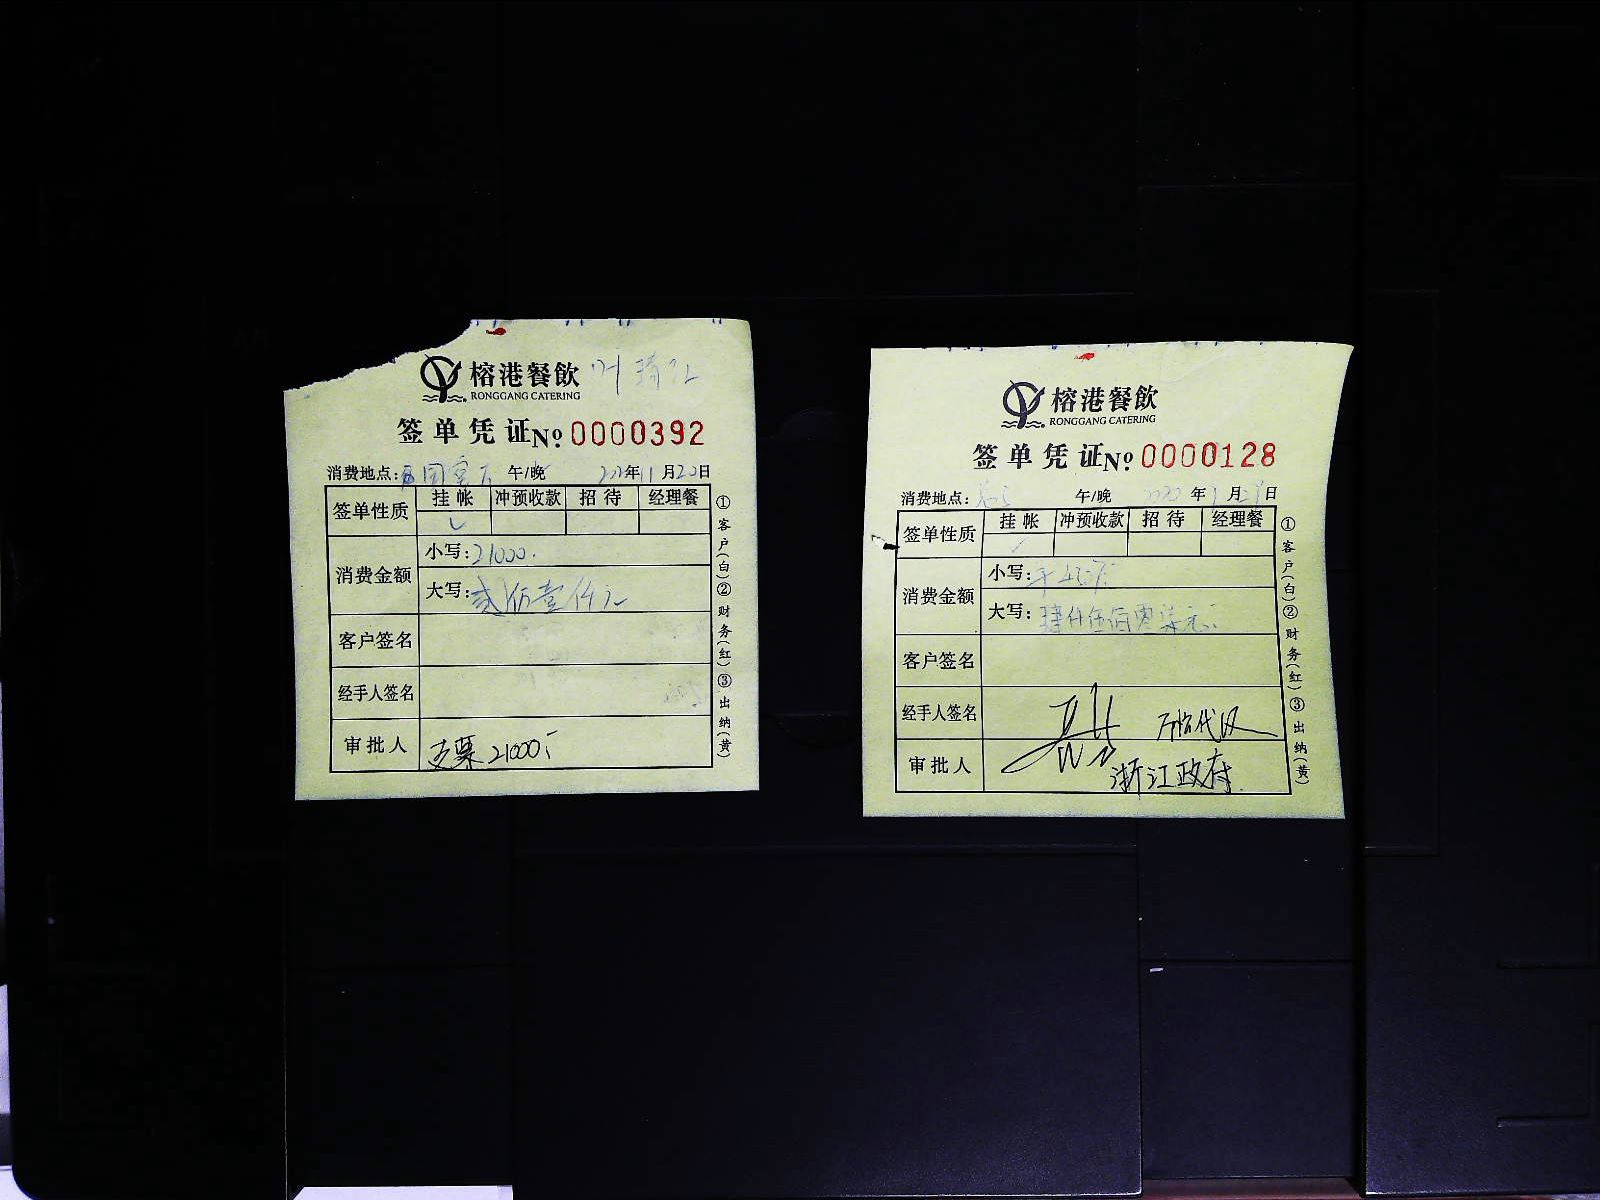 榕港餐飲
RONGGANG CATERING
签单凭证 No 0000392
消费地点: 午/晚 年11月20日
签单性质 挂帐 冲预收款 招待 经理餐
消费金额
小写: 21000.
大写: 贰万壹仟元
客户签名
经手人签名
审批人 支票21000
①客户(白)②财务(红)③出纳(黄)
榕港餐飲
RONGGANG CATERING
签单凭证 No 0000128
消费地点: 午/晚 2020年 月29日
签单性质 挂帐 冲预收款 招待 经理餐
消费金额
小写:
大写: 肆仟伍佰零柒元
客户签名
经手人签名
审批人 浙江政府
①客户(白)②财务(红)③出纳(黄)